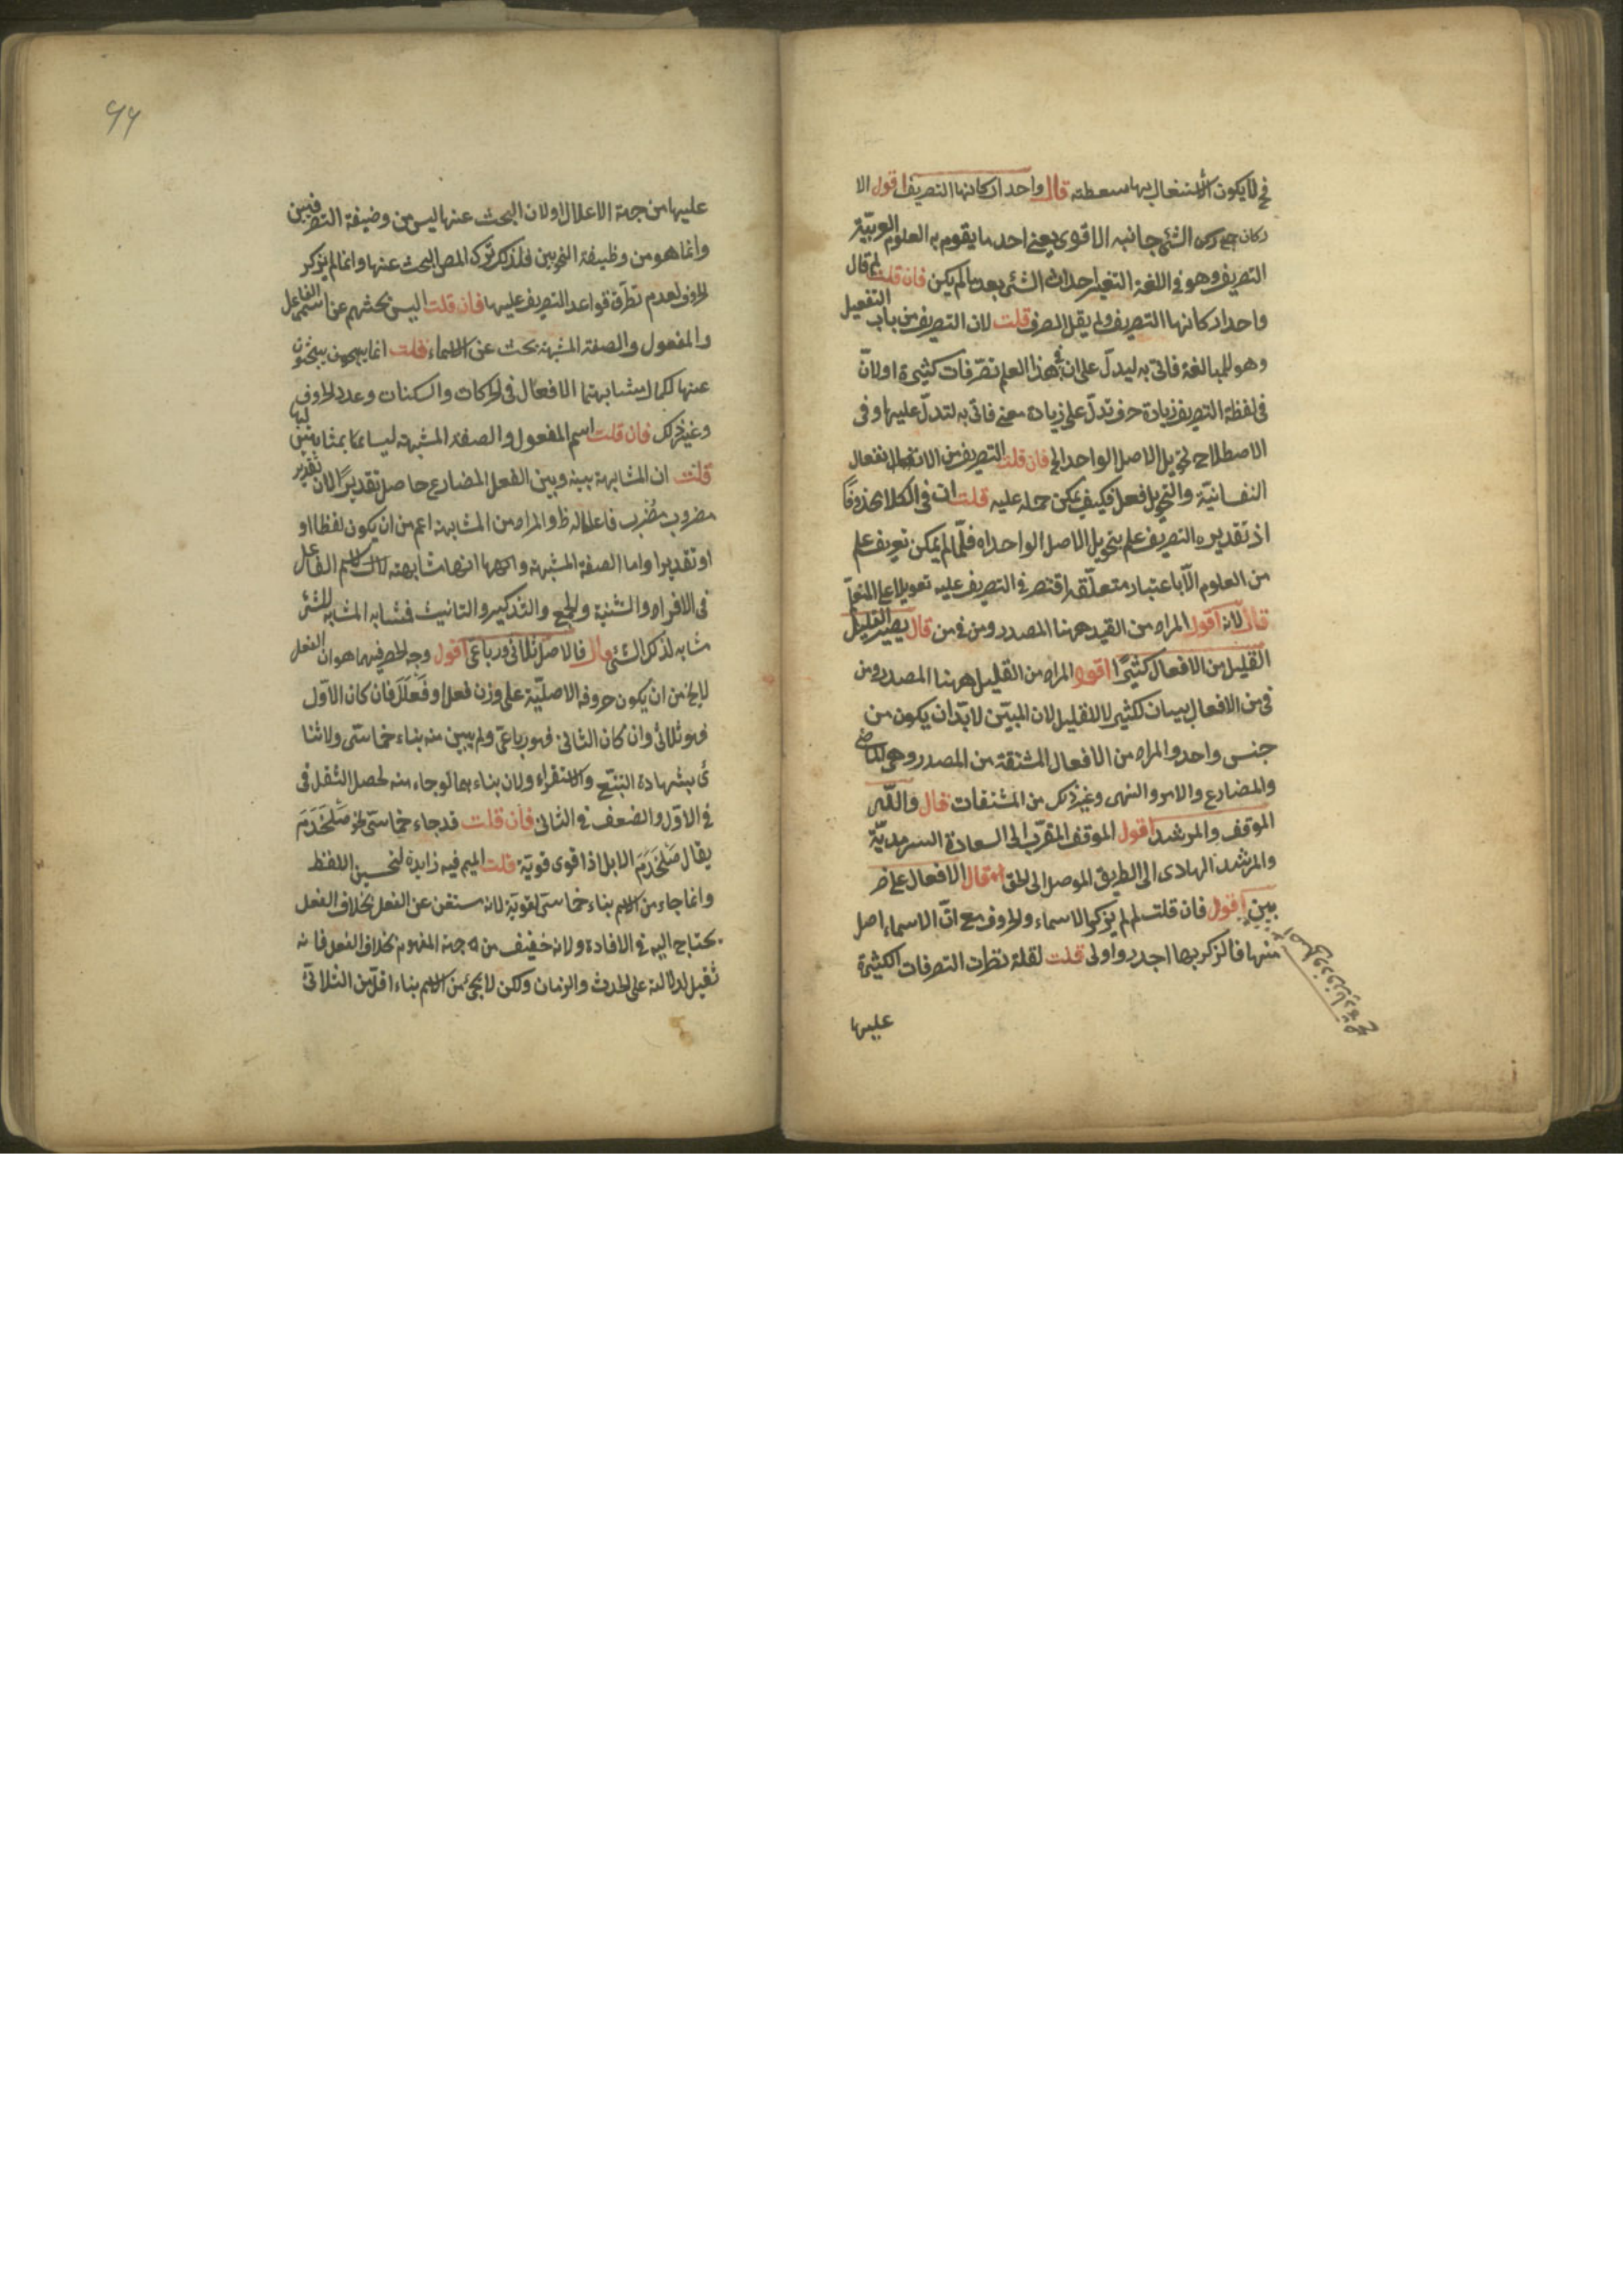 فح لا يكون الاشتغال بها سعطة قال واحد اركانها التصريف اقول الا
ركان جمع ركن الشئ جانبه الاقوى يعنى احد ما يقوم به العلوم العربيّة
التصريف وهو فى اللغة التغير احداث الشئ بعد مالم يكن فان قلت لم قال
واحد اركانها التصريف ولم يقل الصرف قلت لان التصريف من باب التفعيل
وهو للمبالغة فاتى به ليدلّ على ان فى هذا العلم تصرّفات كثيرة او لانّ
فى لفظة التصريف زيادة حرف تدلّ على زيادة معنى فاتى به لتدلّ عليها وفى
الاصطلاح تحويل الاصل الواحد الخ فان قلت التصريف من الانفعال
النفسانيّة والتحويل فعل فكيف يمكن حمله عليه قلت ان فى الكلام محذوفًا
اذ تقديره التصريف علم بتحويل الاصل الواحد اه فلمّا لم يمكن تعريف علم
من العلوم الّا باعتبار متعلّقه اقتصر فى التصريف عليه تعويلا على المتعلّم
قال لانه اقول المراد من القيد ههنا المصدر ومن فى من قال يصير القليل
القليل من الافعال كثيرًا اقول المراد من القليل ههنا المصدر ومن
فى من الافعال بيان لكثير لا لقليل لان المبيّن لابدّ ان يكون من
جنس واحد والمراد من الافعال المشتقة من المصدر وهى الماضى
والمضارع والامر والنهى وغير ذلك من المشتقات قال واللّه
الموفق والمرشد اقول الموفق المقرّب الى السعادة السرمديّة
والمرشد الهادى الى الطريق الموصل الى الحق قال الافعال على ضر
بين اقول فان قلت لم لم يذكر الاسماء والحروف مع انّ الاسماء اصل
منها فالذكر بها اجدر واولى قلت لقلة تطرّت التصرفات الكثيرة
عليها
عليها من جهة الاعلال او لان البحث عنها ليس من وضيفة التصرفيين
وانما هو من وظيفة النحويين فلذلك ترك المص البحث عنها وانما لم يذكر
الحروف لعدم تطرّق قواعد التصريف عليها فان قلت اليس بحثهم عن اسمى الفاعل
والمفعول والصفة المشبهة بحث عن الاسماء قلت انما يبحثون
عنها لكمال مشابهتها الافعال فى الحركات والسكنات وعدد الحروف
وغير ذلك فان قلت اسم المفعول والصفة المشبهة ليسا بمشابهتين لها
قلت ان المشابهة بينه وبين الفعل المضارع حاصل تقديرًا لان تقدير
مضروب مضرب فاعلاله ظ والمراد من المشابهة اعم من ان يكون لفظا او
او تقديرا واما الصفة المشبهة وانها مشابهته لاسم الفاعل
فى الافراد والتثنية والجمع والتذكير والتانيث فمشابه المشابه للشئ
مشابه لذلك الشئ قال فالاصل ثلاثى ورباعى اقول وجه الحصر فيهما هو ان الفعل
لا يخ من ان يكون حروفه الاصليّة على وزن فعل او فَعْلَلَ فان كان الاوّل
فهو ثلاثى وان كان الثانى فهو رباعى ولم يبين منه بناء خماسّى ولا ثنا
ئ بشهادة التتبّع والاستقراء ولان بناءهما لو جاء منه لحصل الثقل فى
فى الاوّل والضعف فى الثانى فان قلت قد جاء خماسّى نحو صَلَخْدَمَ
يقال صَلَخْدَمَ الابل اذا قوى قويّة قلت الميم فيه زايدة لتحسين اللفظ
وانما جاء من الاسم بناء خماسى لقوته لانه مستغن عن الفعل بخلاف الفعل
يحتاج اليه فى الافادة ولانه خفيف من جهة المفهوم بخلاف الفعل فانه
ثقيل لدلالته على الحدث والزمان ولكن لا يجئ من الاسم بناء اقلّ من الثلاثىّ